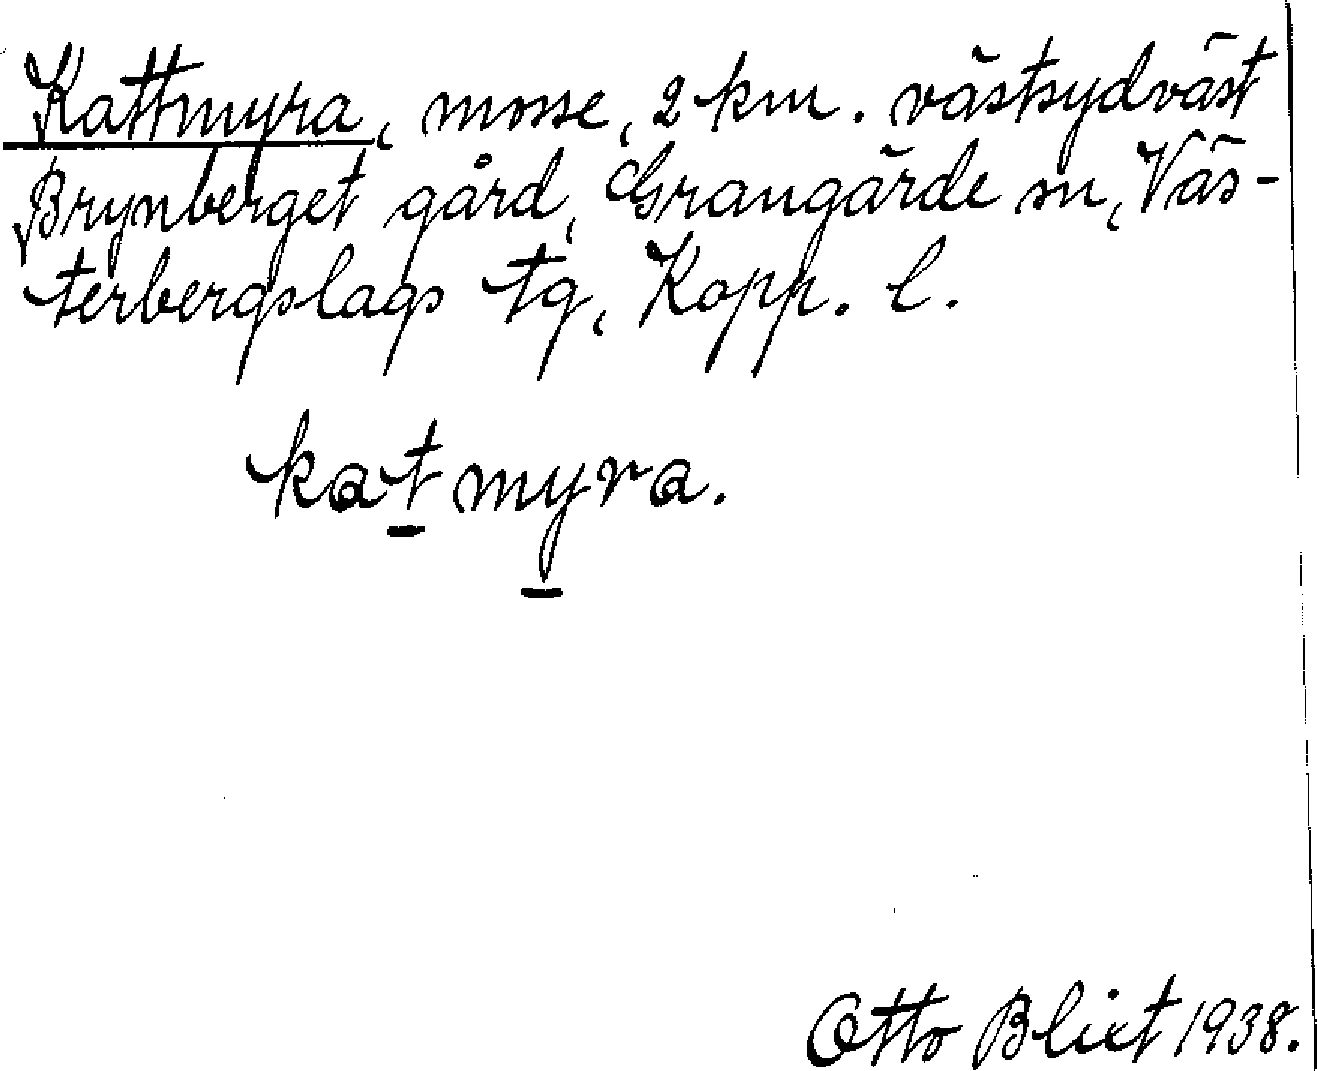 Kattmyra, mosse, 2 km. västsydväst
Brynberget gård, Grangärde sn, Väs-
terbergslags tg, Kopp. l.
katmyra.
Otto Blixt 1938.